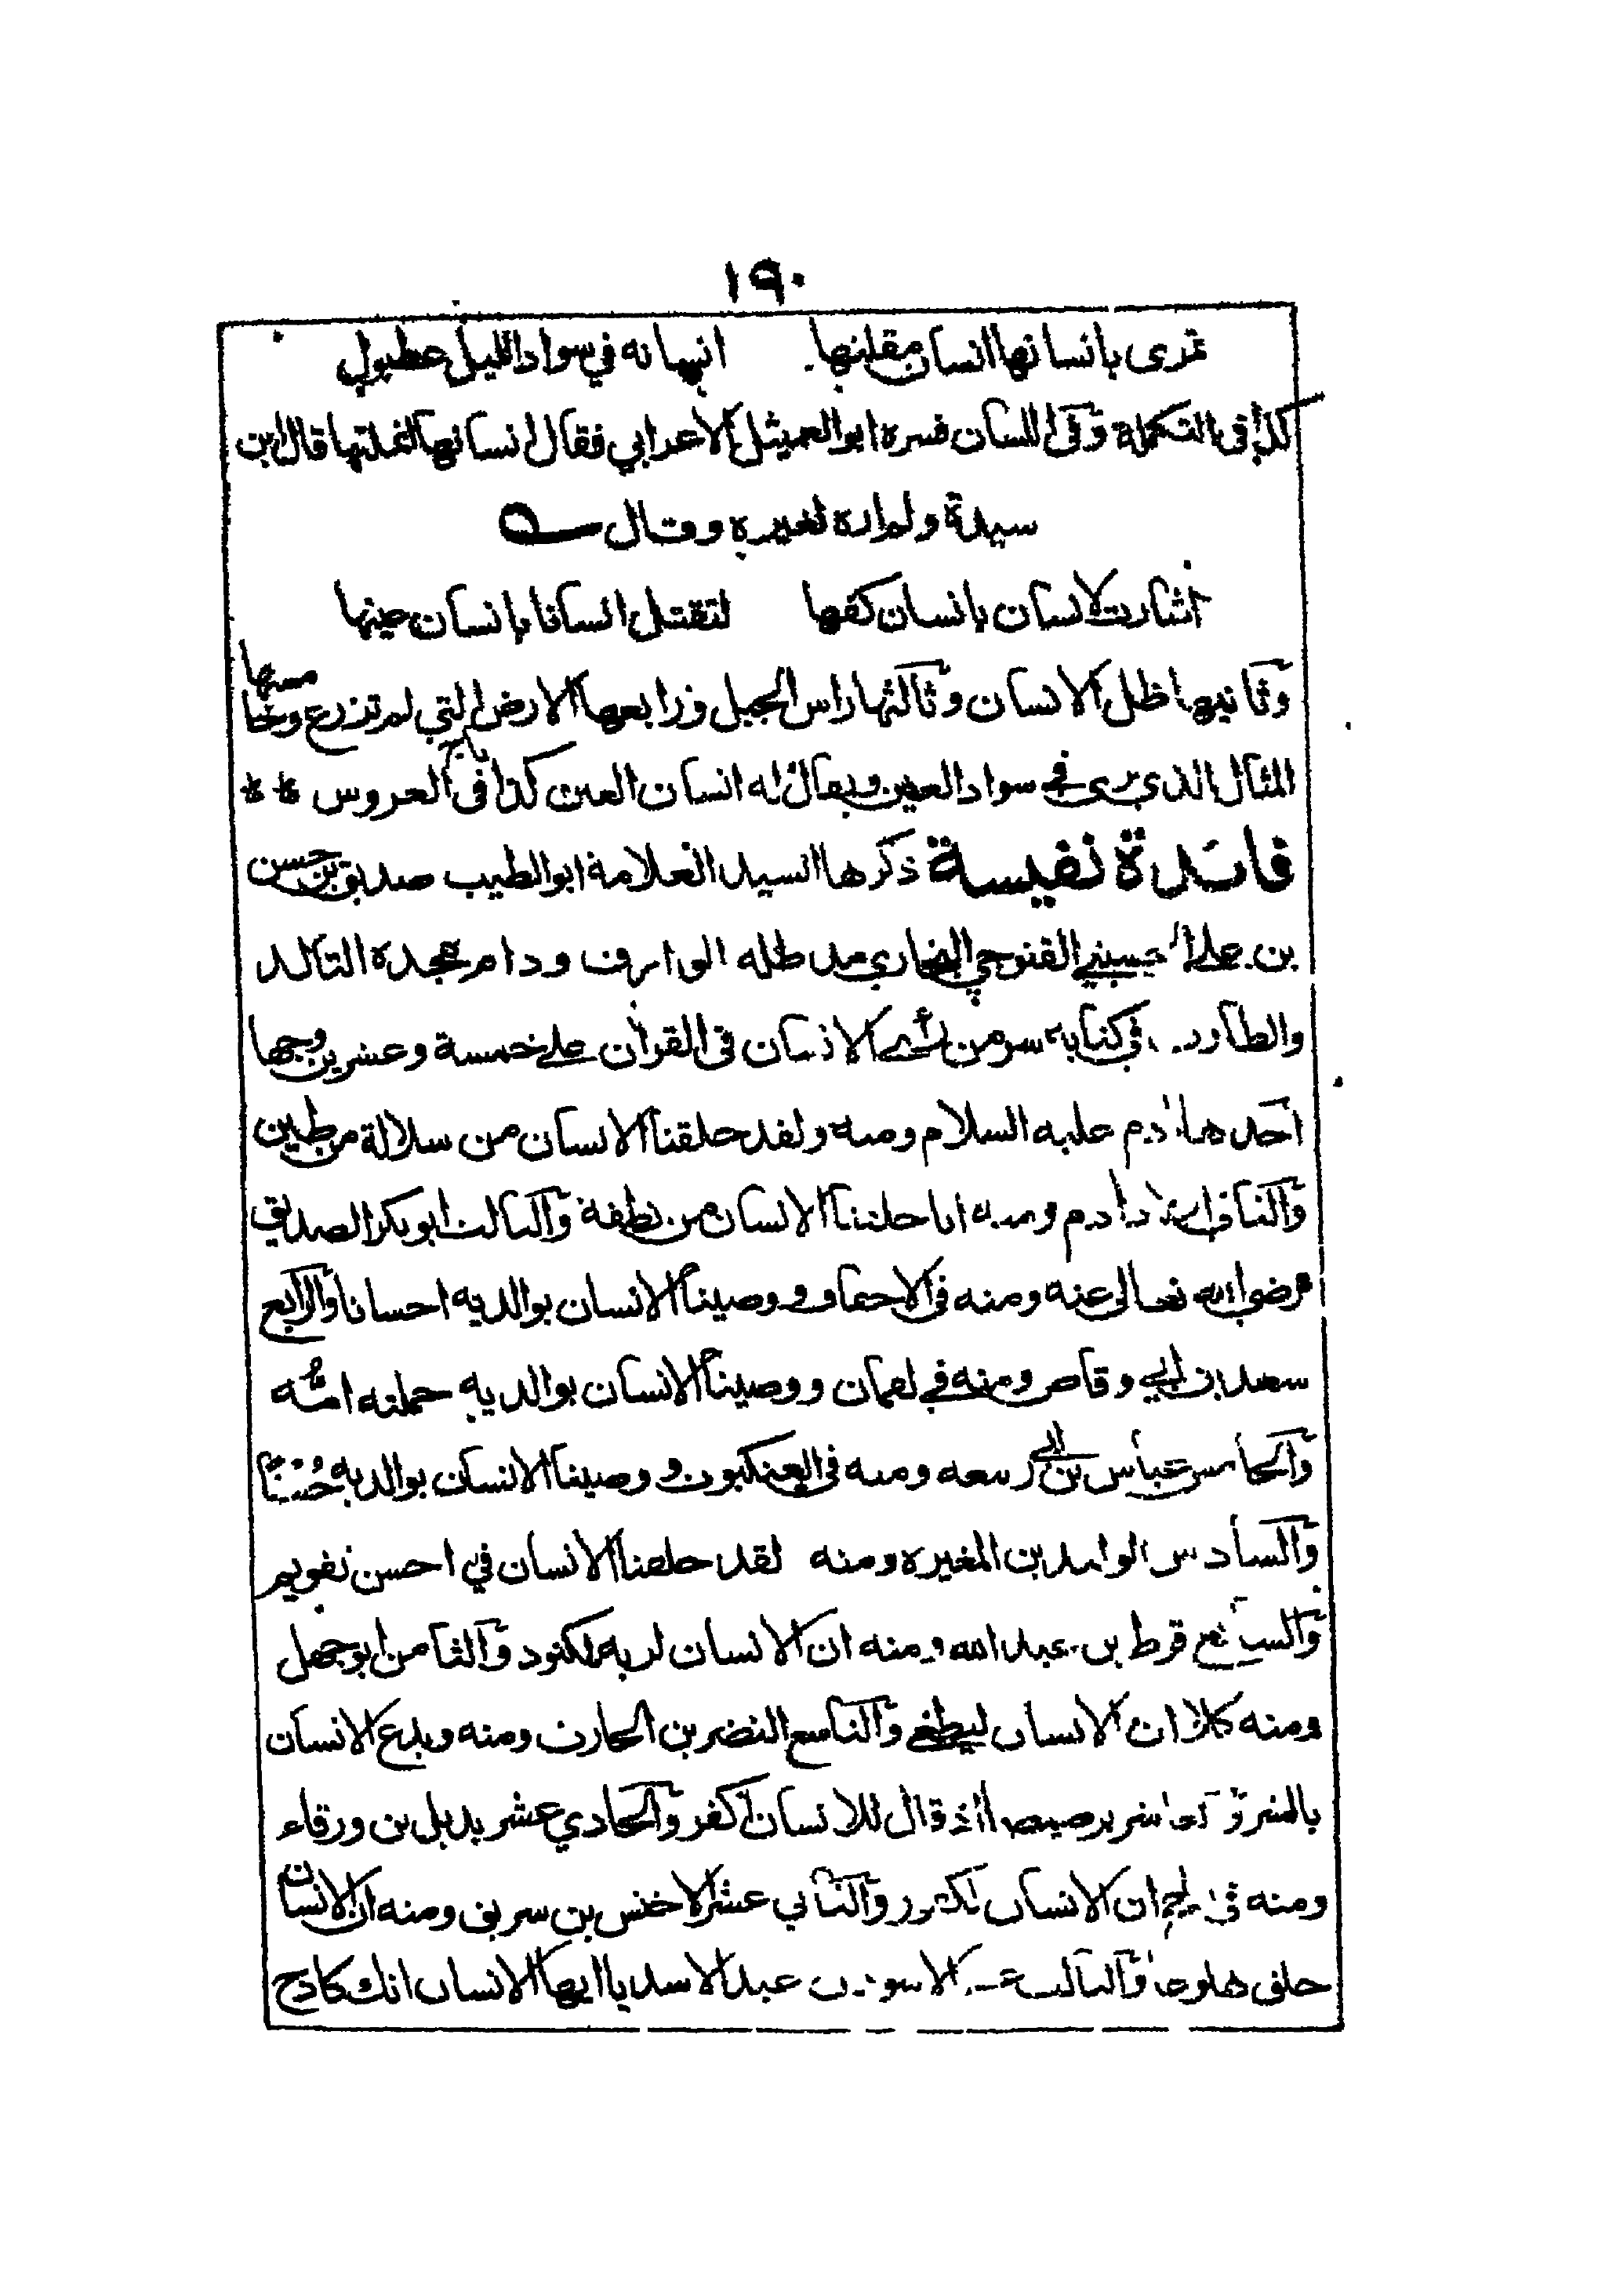 ١٩٠
تمرى بانسانها انسان مقلتها انسانه في سواد الليل عطبول
كذا في التكملة وفي اللسان فسره ابو العميثل الاعرابي فقال انسانها انملتها قال ابن
سيدة ولم اره لغيره وقال
اشارت لانسان بانسان كفها لتقتل انسانا بانسان عينها
وثانيها ظل الانسان وثالثها راس الجبل ورابعها الارض التي لم تزرع وخامسها
المثال الذي يرى في سواد العين ويقال له انسان العين كذا في تاج العروس
فائدة نفيسة ذكرها السيد العلامة ابو الطيب صديق بن حسن
بن علي الحسيني القنوجي البخاري مد ظله الوارف ودام مجده التالد
والطارف في كتابه سر من الانسان في القرآن على خمسة وعشرين وجها
احدها آدم عليه السلام ومنه ولقد خلقنا الانسان من سلالة من طين
والثاني اولاد آدم ومنه انا خلقنا الانسان من نطفة والثالث ابو بكر الصديق
رضي الله تعالى عنه ومنه في الاحقاف ووصينا الانسان بوالديه احسانا والرابع
سعد بن ابي وقاص ومنه في لقمان ووصينا الانسان بوالديه حملته امُّه
والخامس عياش بن ابي ربيعه ومنه في العنكبوت ووصينا الانسان بوالديه حُسْنًا
والسادس الوليد بن المغيره ومنه لقد خلقنا الانسان في احسن تقويم
والسابع قرط بن عبد الله ومنه ان الانسان لربه لكنود والثامن ابو جهل
ومنه كلا ان الانسان ليطغى والتاسع النضر بن الحارث ومنه ويدع الانسان
بالشر والعاشر برصيصا اذ قال للانسان اكفر والحادي عشر بديل بن ورقاء
ومنه في الحج ان الانسان لكفور والثاني عشر الاخنس بن شريق ومنه ان الانسان
خلق هلوعا والثالث عشر الاسود بن عبد الاسد يا ايها الانسان انك كادح